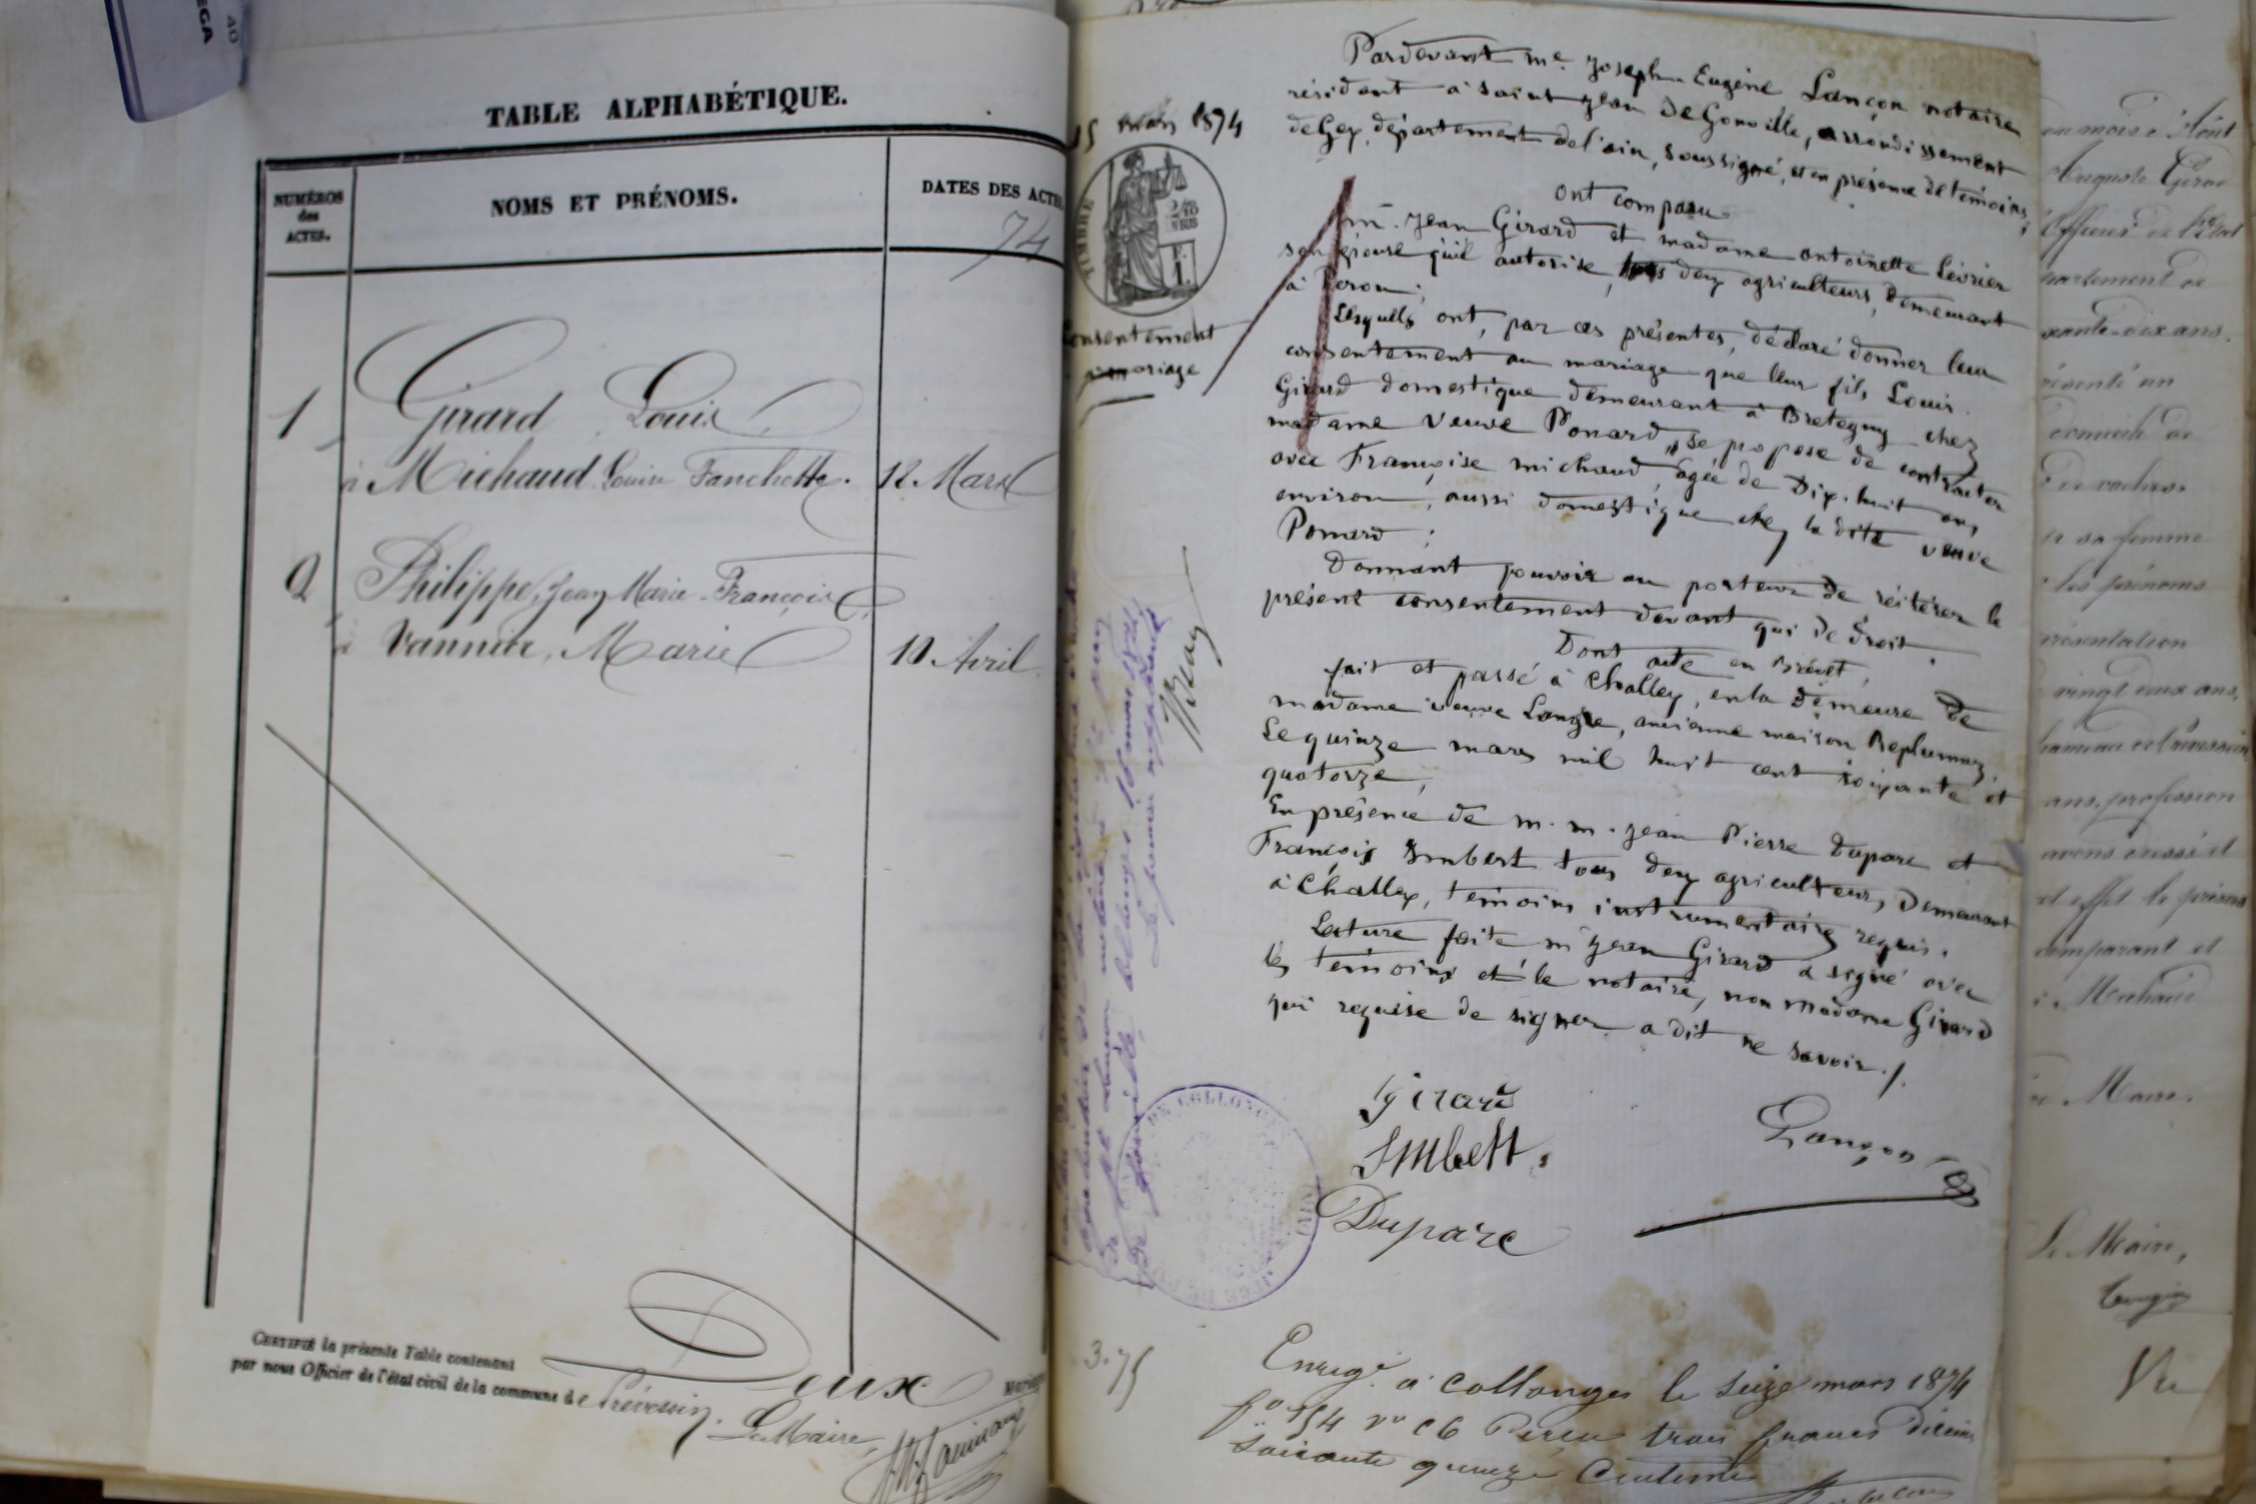 EGA
40
TABLE ALPHABÉTIQUE.
NUMÉROS
des
ACTES.
NOMS ET PRÉNOMS.
DATES DES ACTES
74
1
Girard Louis
à Michaud Louise Fanchette.
12 Mars
2
Philippe, Jean Marie François
à Vannier, Marie
10 Avril
CERTIFIÉ la présente Table contenant Deux Mariages
par nous Officier de l'état civil de la commune de Prévessin.
Le Maire,
15 mars 1874
TIMBRE
Consentement
à mariage
Pardevant me. Joseph-Eugène Lançon notaire
résidant à saint jean de Gonville, arrondissement
de Gex, département de l'ain, soussigné, et en présence de témoins,
ont comparu
m. Jean Girard et madame antoinette Levrier
son épouse qu'il autorise, tous deux agriculteurs, demeurant
à Peron;
Lesquels ont, par ces présentes, déclaré donner leur
consentement au mariage que leur fils Louis
Girard domestique demeurant à Bretegny chez
madame veuve Ponard, se propose de contracter
avec Françoise michaud, agée de Dix-huit ans
environ, aussi domestique chez la dite veuve
Ponard;
Donnant pouvoir au porteur de réitérer le
présent consentement devant qui de droit.
Dont acte en Brévet,
fait et passé à Challex, en la demeure de
madame veuve Longre, ancienne maison Replumaz,
Le quinze mars mil huit cent soixante et
quatorze,
En présence de m. m. Jean Pierre Duparc et
François Imbert tous deux agriculteurs, demeurant
à Challex, témoins instrumentaires requis.
Lecture faite m jean Girard a signé avec
les témoins et le notaire, non madame Girard
qui requise de signer a dit ne savoir./.
Girard
Imbert.
Lançon
Duparc
3.75
Enregé. à Collonges le seize mars 1874
fo 154 vo c6 Perçu trois francs Décimes
soixante quinze centimes
au mois d'Aout
Auguste Girod
Officier de l'Etat
sa femme
les prénoms
vingt deux ans,
ans, profession
comparant et
Michaud
Le Maire,
Vu